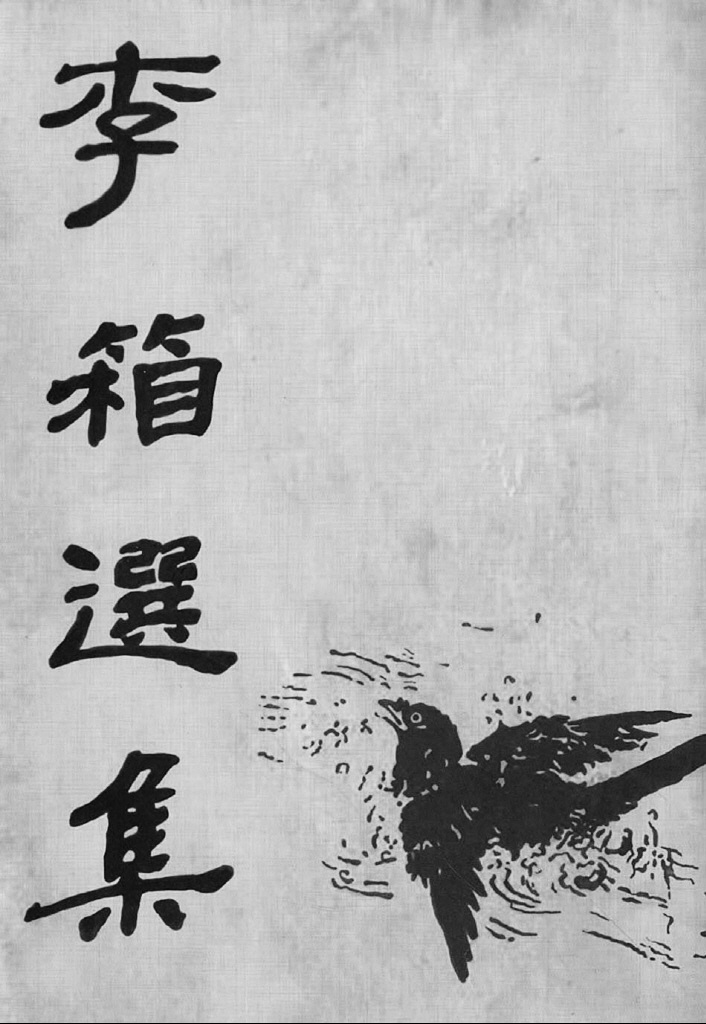 李箱選集